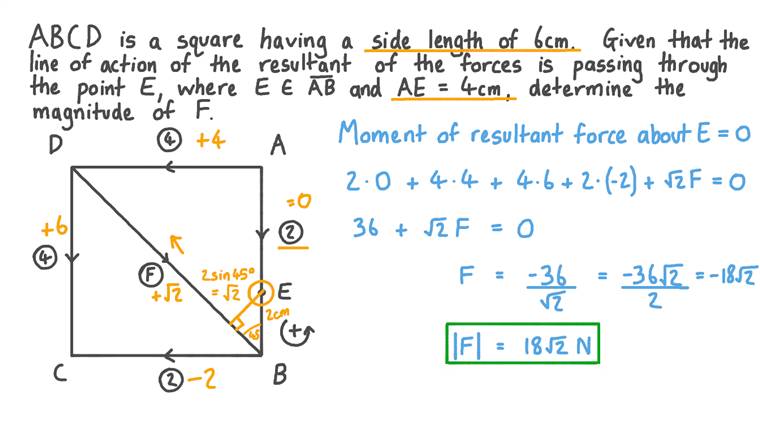 ABCD is a square having a side length of 6cm. Given that the
line of action of the resultant of the forces is passing through
the point E, where E ∈ A̅B̅ and AE = 4cm, determine the
magnitude of F.
④ +4
D
A
Moment of resultant force about E = 0
2·0 + 4·4 + 4·6 + 2·(-2) + √2F = 0
=0
+6
②
36 + √2 F = 0
④
F
2sin45°
=√2
E
+√2
2cm
45
+
F = -36/√2 = -36√2/2 = -18√2
|F| = 18√2 N
C
② -2
B